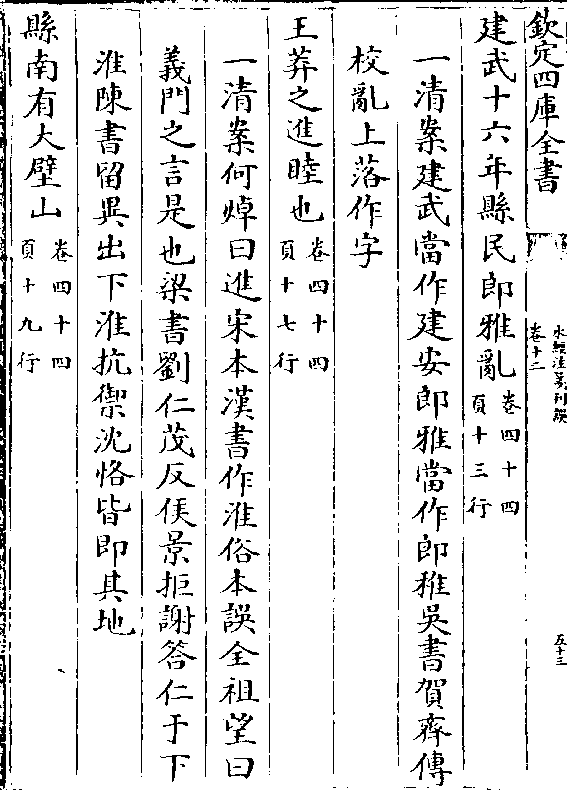 欽定四庫全書
水經注箋刊誤
卷十二
五十三
建武十六年縣民郎雅亂卷四十四頁十三行
一清案建武當作建安郎雅當作郎稚吳書賀齊傳
校亂上落作字
王莽之進睦也卷四十四頁十七行
一清案何焯曰進宋本漢書作淮俗本誤全祖望曰
義門之言是也梁書劉仁茂反侯景拒謝答仁于下
淮陳書留異出下淮抗禦沈恪皆即其地
縣南有大壁山卷四十四頁十九行